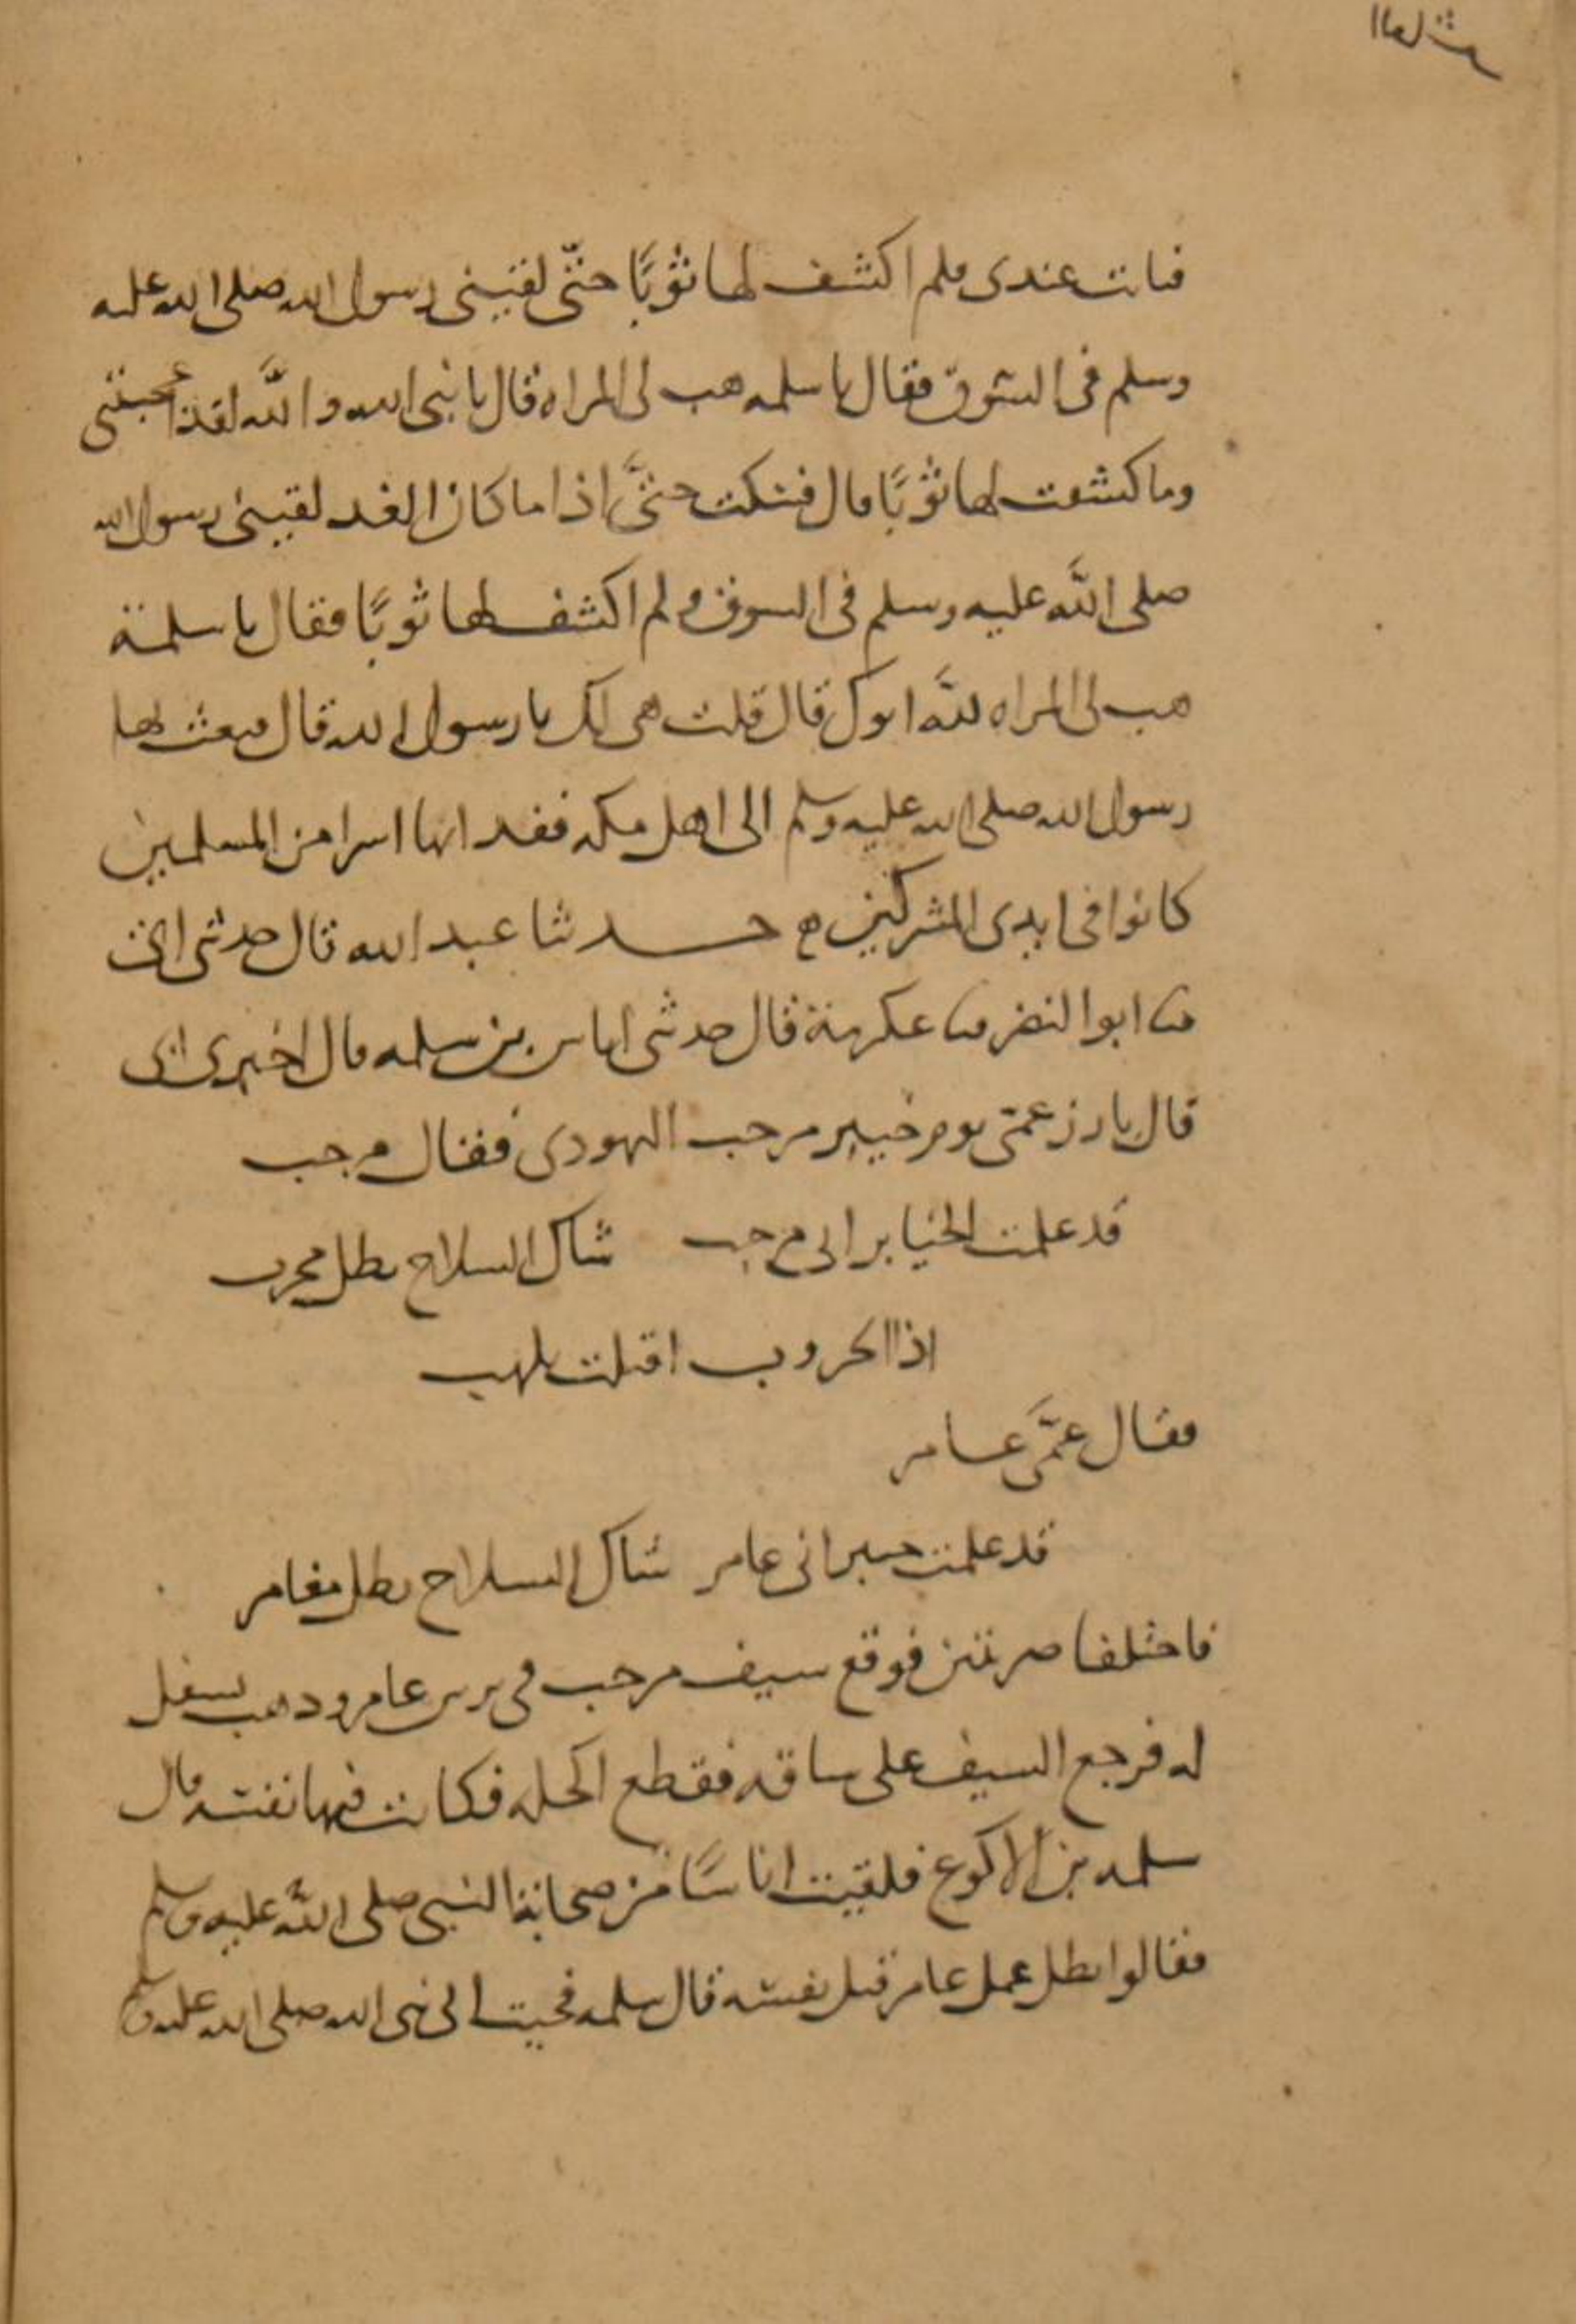 فباتت عندى فلم اكشف لها ثوبًا حتّى لقينى رسول الله صلى الله عليه
وسلم فى السوق فقال يا سلمه هب لى المراه قال يا نبى الله والله لقد اعجبتنى
وما كشفت لها ثوبًا قال فسكت حتَّى اذا ما كان الغد لقينى رسول الله
صلى اللَّه عليه وسلم فى السوق ولم اكشف لها ثوبًا فقال يا سلمة
هب لى المراه للَّه ابوك قال قلت هى لك يا رسول الله قال فبعث بها
رسول الله صلى الله عليه وسلم الى اهل مكه ففدا بها اسرا من المسلمين
كانوا فى ايدى المشركين ه حدثنا عبد الله قال حدثنى ابى
ثنا ابو النضر ثنا عكرمة قال حدثنى اياس بن سلمه قال اخبرنى ابى
قال بارز عمّى يوم خيبر مرحب اليهودى فقال مرحب
قد علمت الخيابر انى مرحب شاك السلاح بطل مجرب
اذا الحروب اقبلت تلهب
فقال عمَّى عامر
قد علمت خيبر انى عامر شاك السلاح بطل مغامر
فاختلفا ضربتين فوقع سيف مرحب فى ترس عامر وذهب يسفل
له فرجع السيف على ساقه فقطع اكحله فكانت فيها نفسه قال
سلمه بن الاكوع فلقيت اناسًا من صحابة النبى صلى اللَّه عليه وسلم
فقالوا بطل عمل عامر قتل نفسه قال سلمه فجيت الى نبى الله صلى الله عليه وسلم